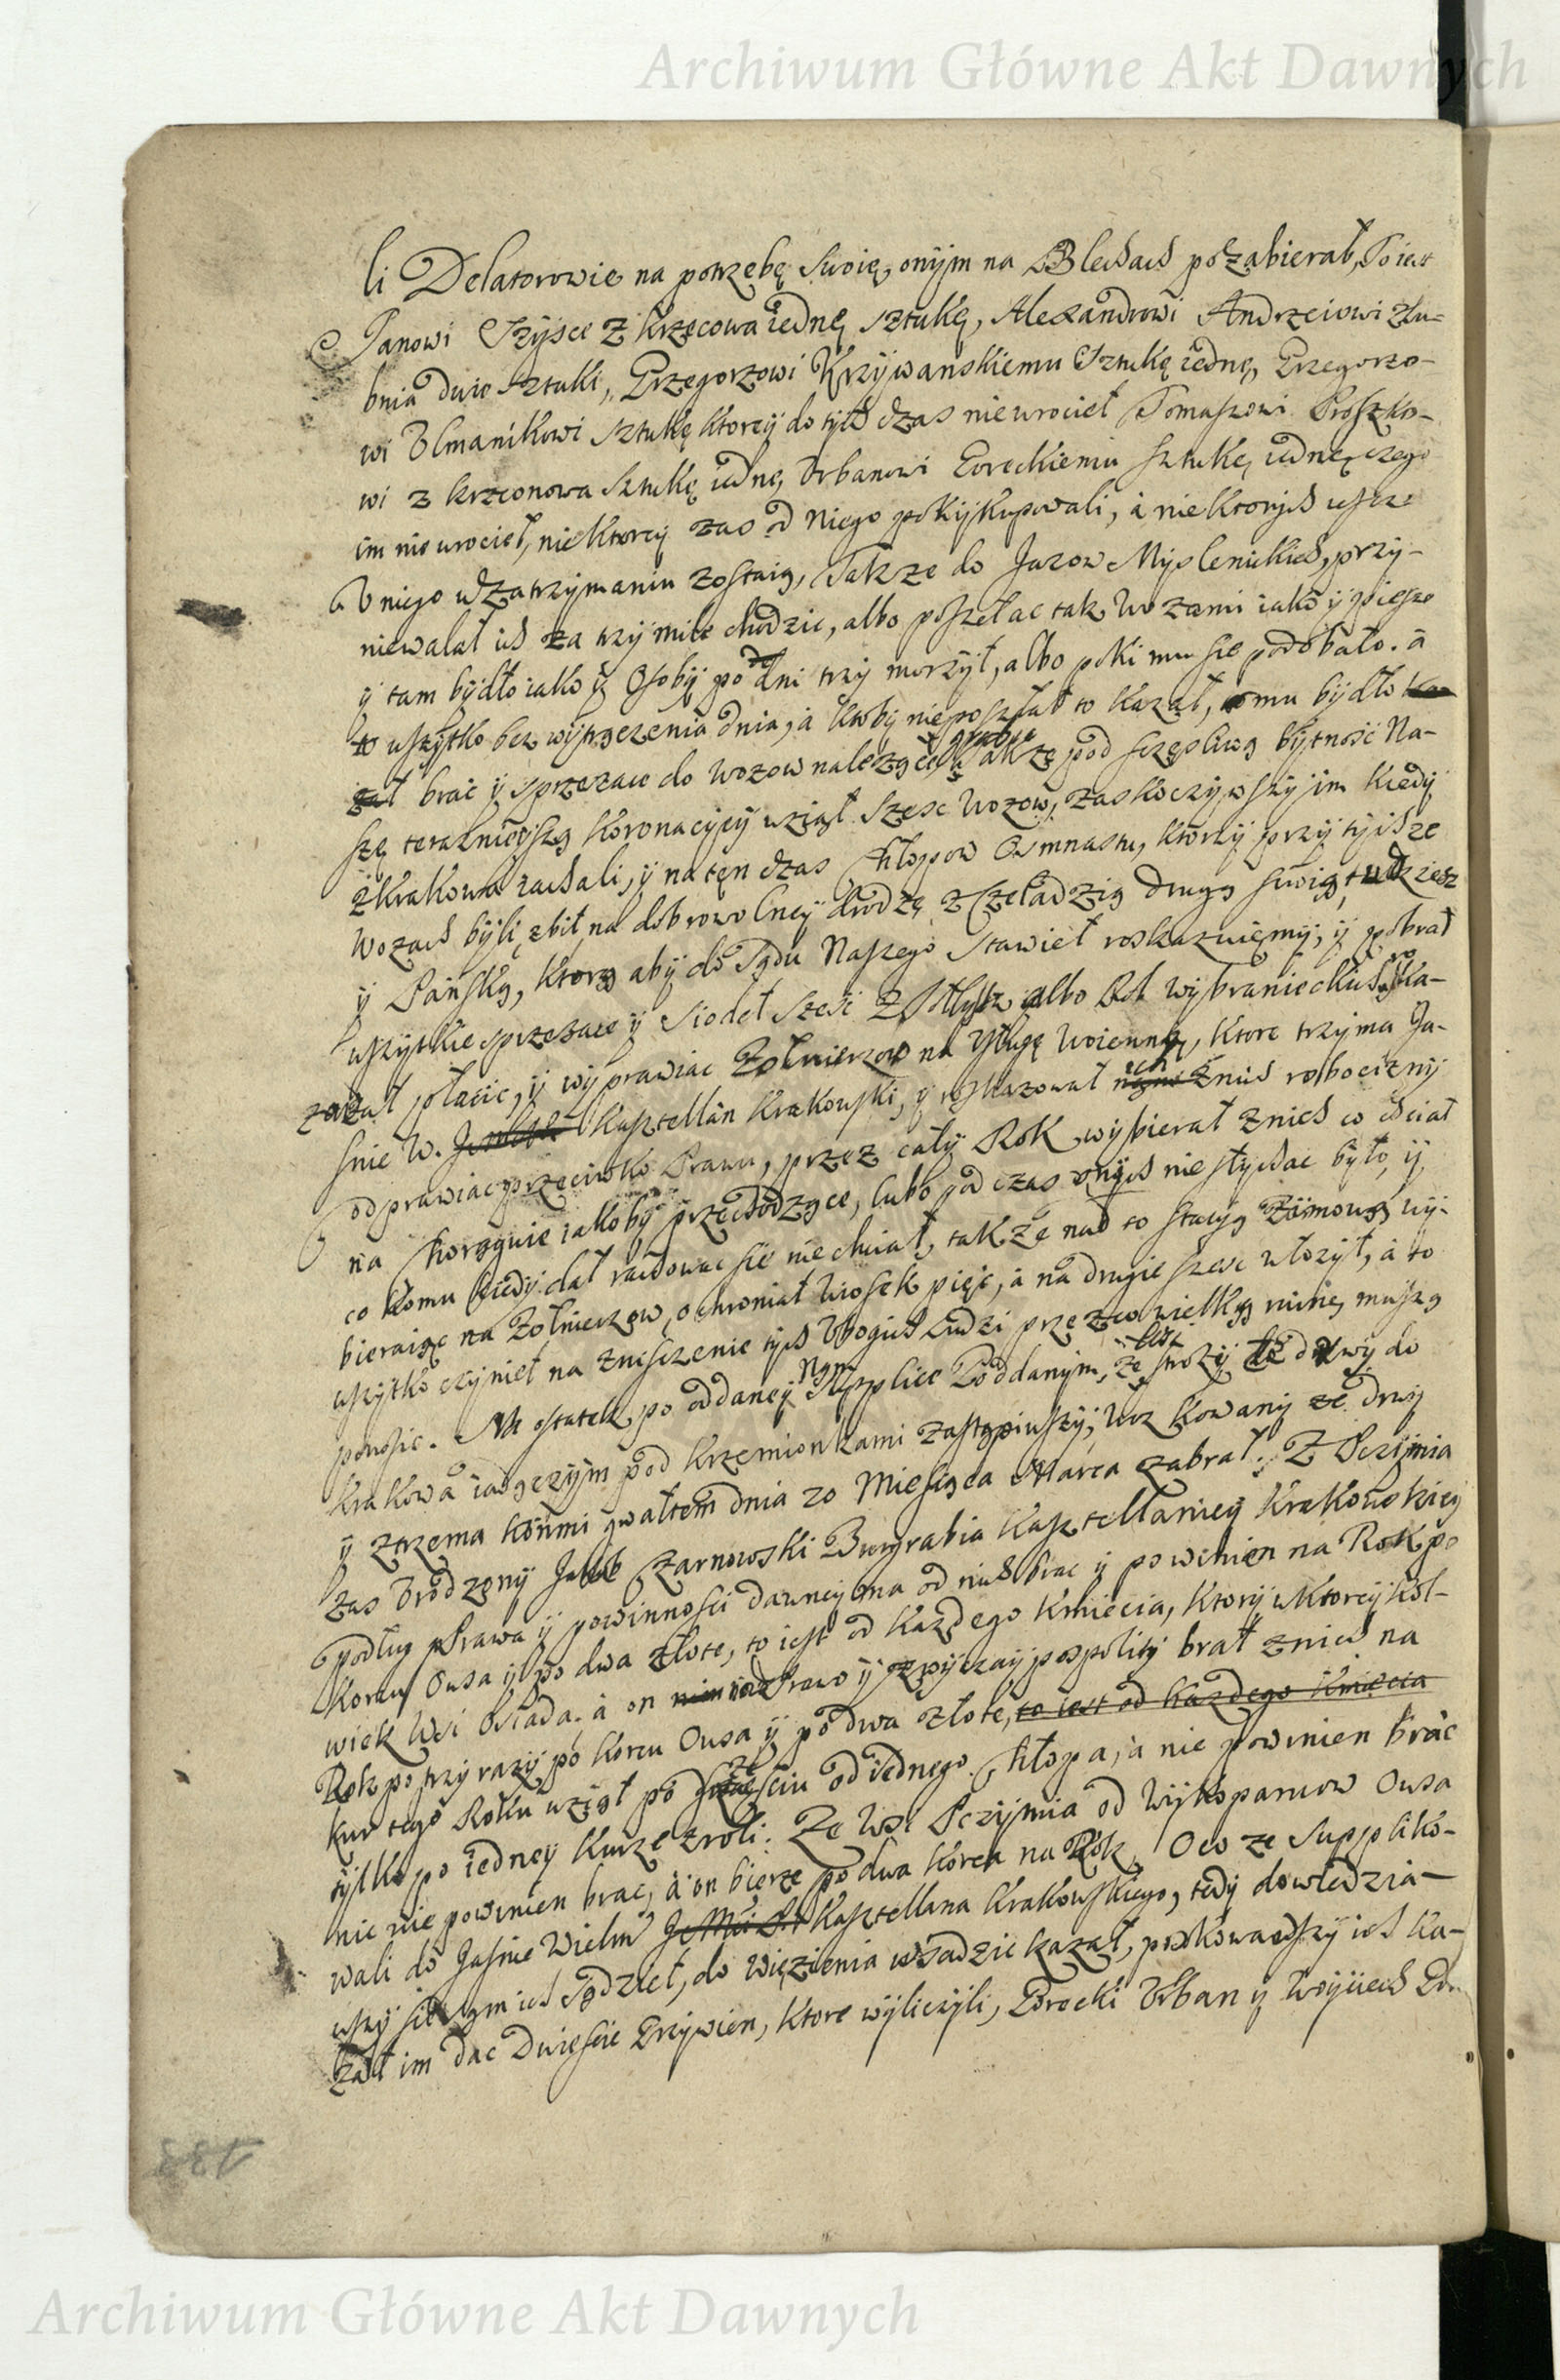 Archiwum Główne Akt Dawnych
li Delatorowie na potrzebę swoię, onym na Blechach pozabierał, To iest
Janowi Szysce z Krzęcowa iednę sztukę, Alexandrowi Andrzeiowi zŁu-
bnia dwie sztuki, Grzegorzowi Krzywanskiemu Sztukę iednę, Grzegorzo-
wi Vlmanikowi sztukę ktorey do tych czas nie wrocieł Tomaszowi Proszko-
wi z krzeonowa sztukę iednę, Vrbanowi Goreckiemu sztukę iednę, czego
im nie wrocieł, niektorzy zas od niego pokykupowali, á niektorych iescze
V niego w zatrzymaniu zostaią, Takze do Jazow Myslenickich, przy-
niewalał ich za trzy mile chodzic, albo poszełac tak Wozami iako y pieszo
y tam bydło iako y Osoby po dni trzy morzył, albo poki mu sie podobało. á
to wszytko bez wytrączenia dnia, á ktoby nieposzłał to kazał, omu bydło ka
zał brac y sprzezaie do Wozow nalezące, grabic Takze pod sczęsliwą bytnosc Na-
szę teraznieyszą Koronacyey wziął szesc Wozow, zaskoczywszy im kiedy
z Krakowa iachali, y na tęn czas Chłopow Osmnastu, ktorzy przy tychze
Wozach byli, zbił na dobrowolney drodze, z Czeladzią drugą swoią, tudziesz
y Pańską, ktorą aby do Sądu Naszego stawieł roskazuięmy, y pobrał
wszytkie sprzezaie y siodeł szesc Z Sołtystw albo Rol wybranieckich po ka-
zał płacic, y wyprawiac Zołnierzow na Usługę Woienną, ktore trzyma Ja-
snie W. Kasztellan Krakowski, y roskazował ich znich robocizny
odprawiac przeciwko Prawu, przez cały Rok wybierał znich co chciał
na Chorągwie iakoby przechodzące, lubo pod czas onych nie słychac było, y
co komu kiedy dał rachowac sie niechciał, takze nad to stacyą Zimową wy-
bieraiąc na Zołnierzow, ochroniał Wiosek pięc, á na drugie szesc włozył, á to
wszytko czynieł na zniszczenie tych Vbogich Ludzi przez co wielką ruinę muszą
ponosic. Na ostatek po oddaney Nam Supplice Poddanym, ze strozy lesz drwy do
Krakowa iadączym pod Krzemionkami zastąpiwszy, Woz kowany ze drwy
y ztrzema końmi gwałtem dnia 20 Miesiąca Marca zabrał. Z Pczymia
zas Vrodzony Jakub Czarnowski Burgrabia Kasztellaniey Krakowskiey
podług Prawa y powinnosci dawney ma od nich brac y powinien na Rok po
Korcu Owsa y po dwa złote, to iest od kazdego Kmiecia, ktory wktoreykol-
wiek Wsi Osiada. á on nad Prawo y zwyczay pospolity brał znich na
Rok po trzy razy po korcu Owsa y po dwa złote, to iest od kazdego Kmiecia
kur tego Roku wziął po szesciu od iednego Chłopa, á nie powinien brac
tylko po iedney kurze zroli. Ze Wsi Pczymia od Wykopanców Owsa
nic nie powinien brac, á on bierze po dwa korca na Rok. Oco ze suppliko-
wali do Jasnie Wielm Kasztellana Krakowskiego, tedy dowiedzia-
wszy sie zmich Sędzieł, do więzienia wsadzic kazał, pookowawszy ich ka-
zał im dac Dwiescie Grzywien, ktore wyliczyli, Gorecki Vrban y Woyciech
133
Archiwum Główne Akt Dawnych